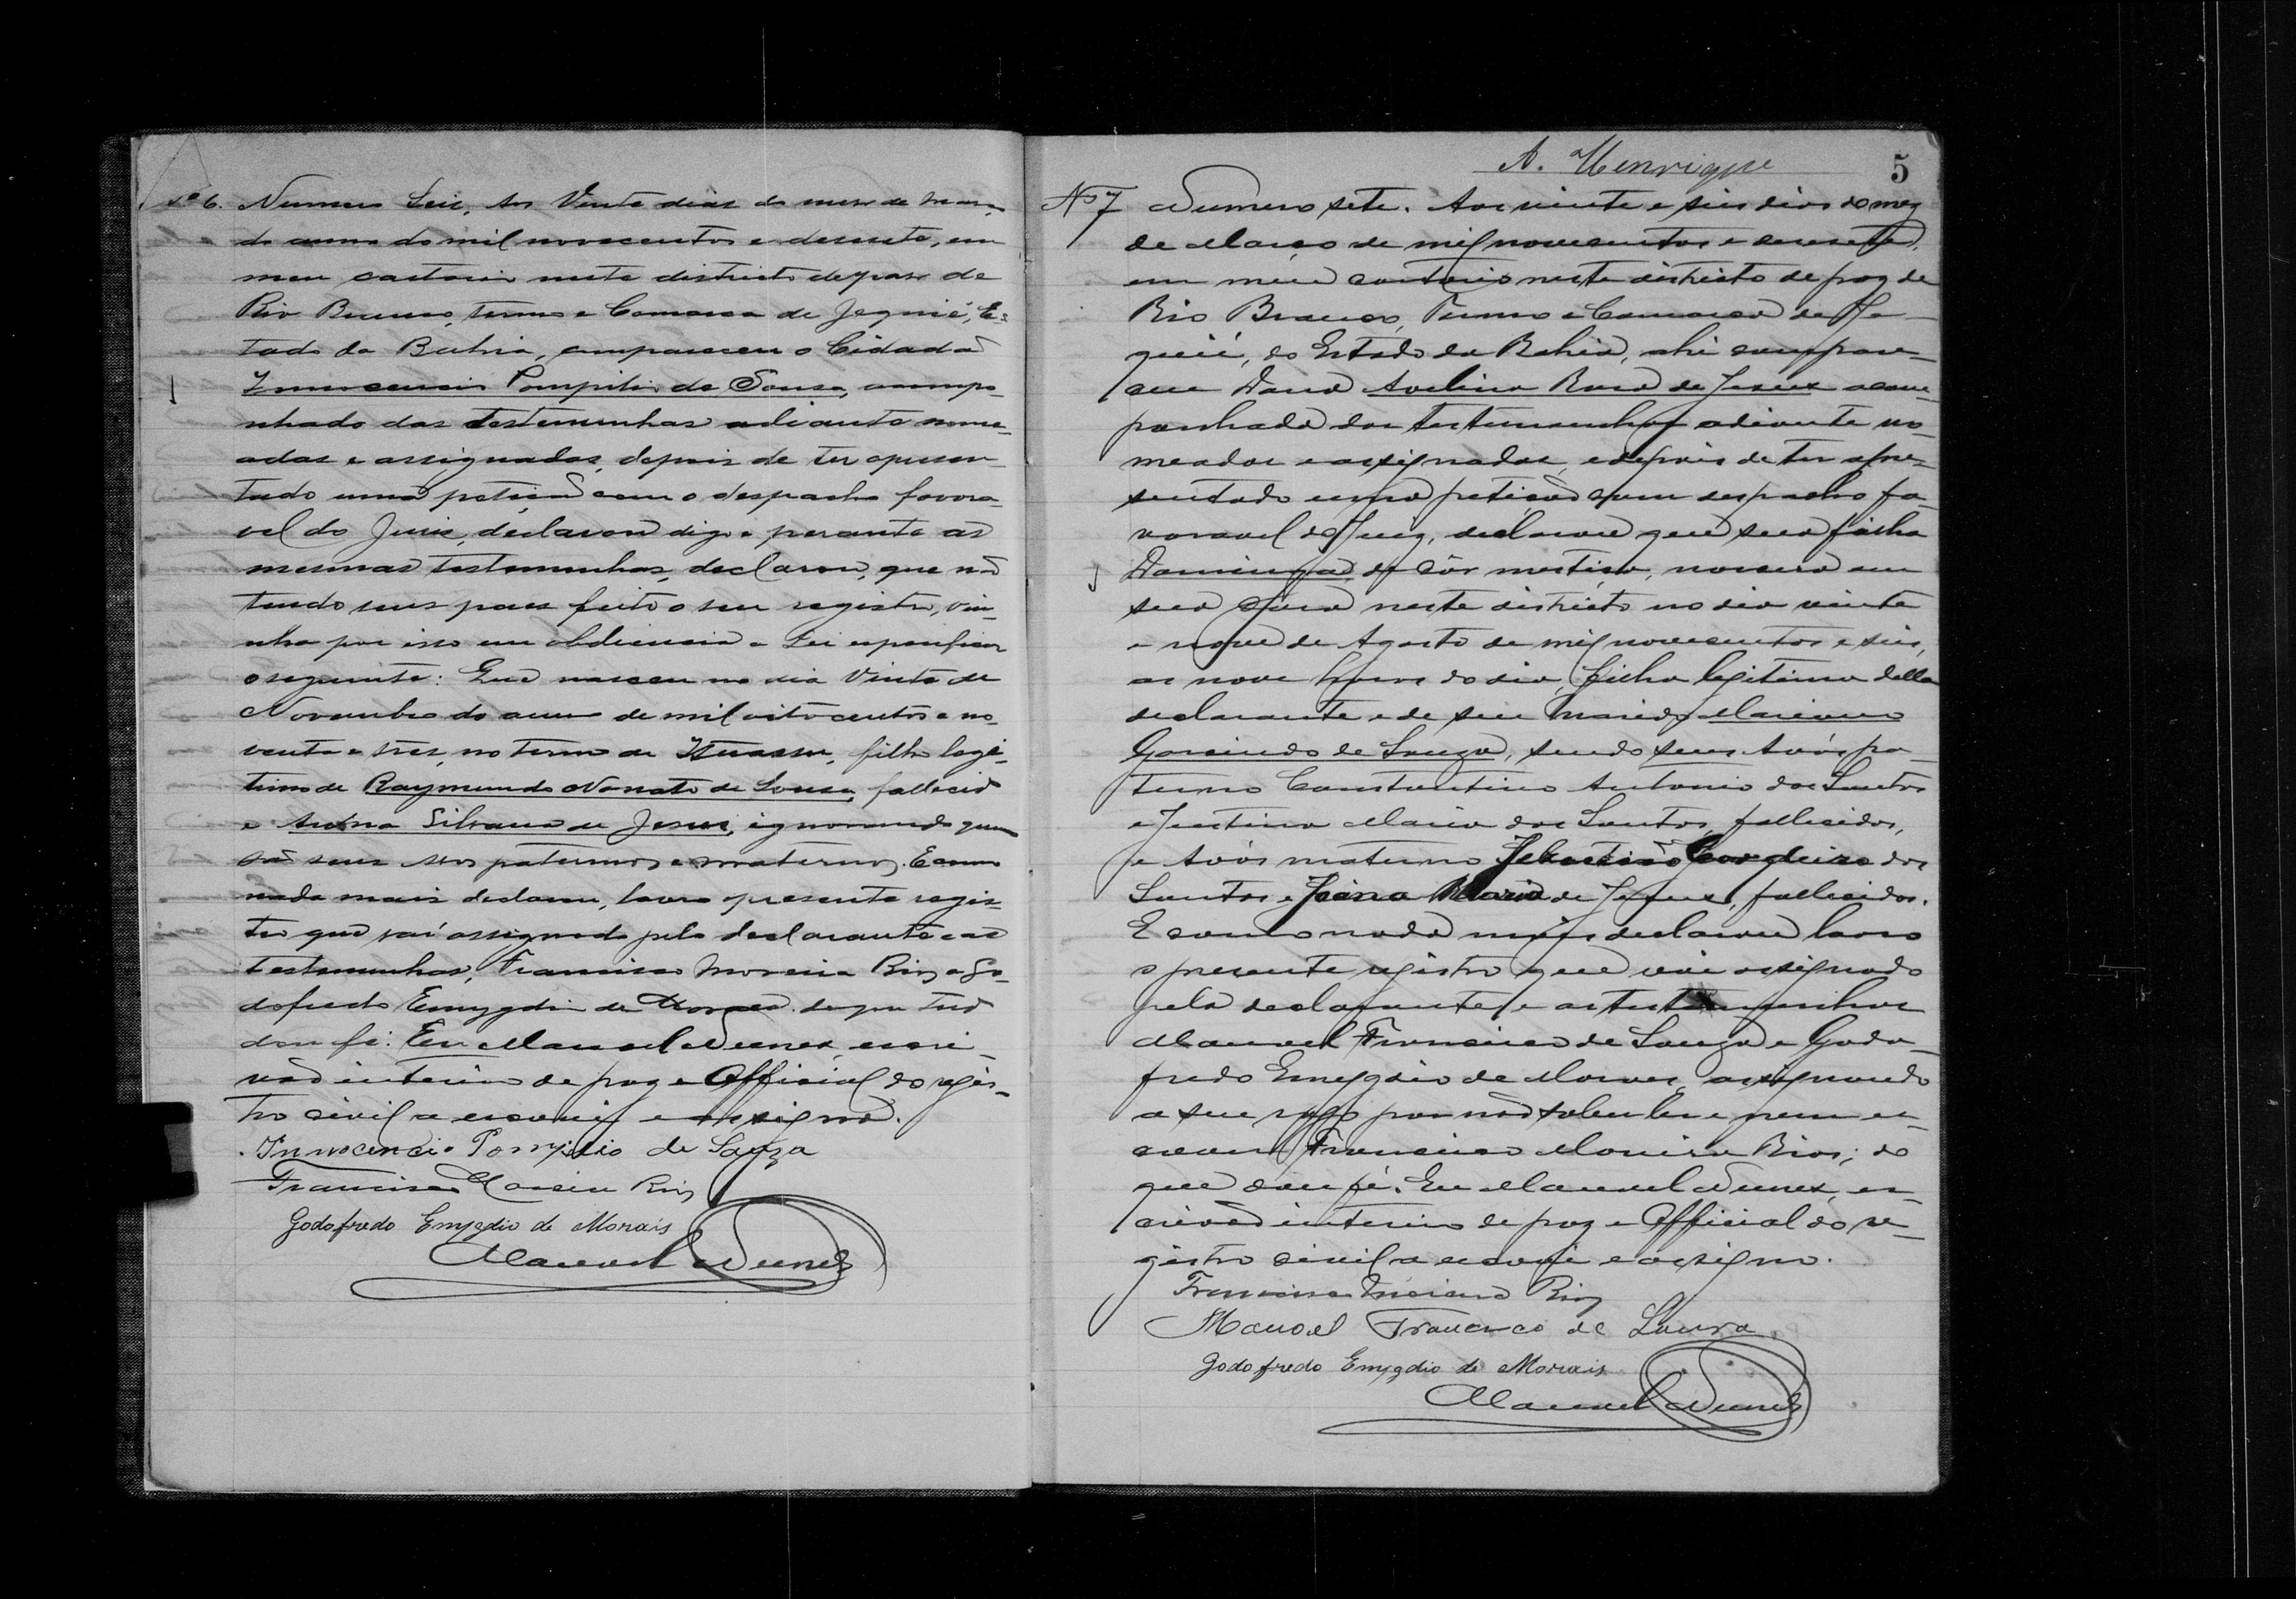 Nº 6. Numero Seis, Aos Vinte dias do mes de Março
do anno de mil novecentos e desesete, em
meu cartorio neste districto de pase de
Rio Branco, termo e Comarca de Jequié, Es-
tado da Bahia, compareceu o Cidadão
Innocencio Pompilio de Sousa, acompa-
nhado das testemunhas adiante nome-
adas e assignadas, depois de ter apresen-
tado uma petição com o despacho favora-
vel do Juis, declarou digo e perante as
mesmas testemunhas, declarou, que não
tendo seus paes feito o seu registro, vi-
nha por isso em obdiencia a Lei especificar
o seguinte: Que nasceu no dia Vinte de
Novembro do anno de mil oitocentos e no-
venta e tres, no termo de Ituassu, filho legi-
timo de Raymundo Nonato de Sousa, fallecido
e Anna Silvana de Jesus, ignorando quem
são seus avos paternos e maternos. E como
nada mais declarou, lavro o presente regis-
tro que vai assignado pelo declarante e as
testemunhas, Francisco Moreira Rios e Go-
dofredo Emygdio de Moraes. do que tudo
dou fé. Eu Manoel Nunes, escri-
vão interino de paz e Official do regis-
tro civil o escrevi e assigno.
Innocencio Pompilio de Souza
Francisco Moreira Rios
Godofredo Emygdio de Morais
Manoel Nunes
A. Henrique
5
Nº 7 Numero sete. Aos vinte e seis dias do mez
de Março de mil novecentos e desesete,
em meu cartorio neste districto de paz de
Rio Branco, Termo e Comarca de Je-
quié, do Estado da Bahia, ahi compare-
ceu Dona Avelina Rosa de Jesus acom-
panhada das testemunhas adiante no-
meadas e assignadas, e depois de ter apre-
sentado uma petição com despacho fa-
voravel do Juiz, declarou que sua filha
Dominga, de côr mestiça, nasceu em
sua casa neste districto no dia vinte
e nove de Agosto de mil novecentos e seis,
as nove horas do dia, filha legitima della
declarante e de seu marido Marianno
de Souza, sendo seus Avós pa-
terno Constantino Antonio dos Santos
e Justina Maria dos Santos, fallecidos,
e Avós materno Sebastião Cordeiro dos
Santos e Joana Maria de Jesus, fallecidos.
E como nada mais declarou lavro
o presente registro que vai assignado
pela declarante e as testemunhas
Manoel Francisco de Souza e Godo-
fredo Emygdio de Moraes, assignando
a seu rogo por não saber ler e nem es-
crever Francisco Moreira Rios; do
que dou fé. Eu Manoel Nunes, es-
crivão interino de paz e Official do re-
gistro civil o escrevi e assigno.
Francisco Moreira Rios
Manoel Francisco de Souza
Godofredo Emygdio de Morais
Manoel Nunes